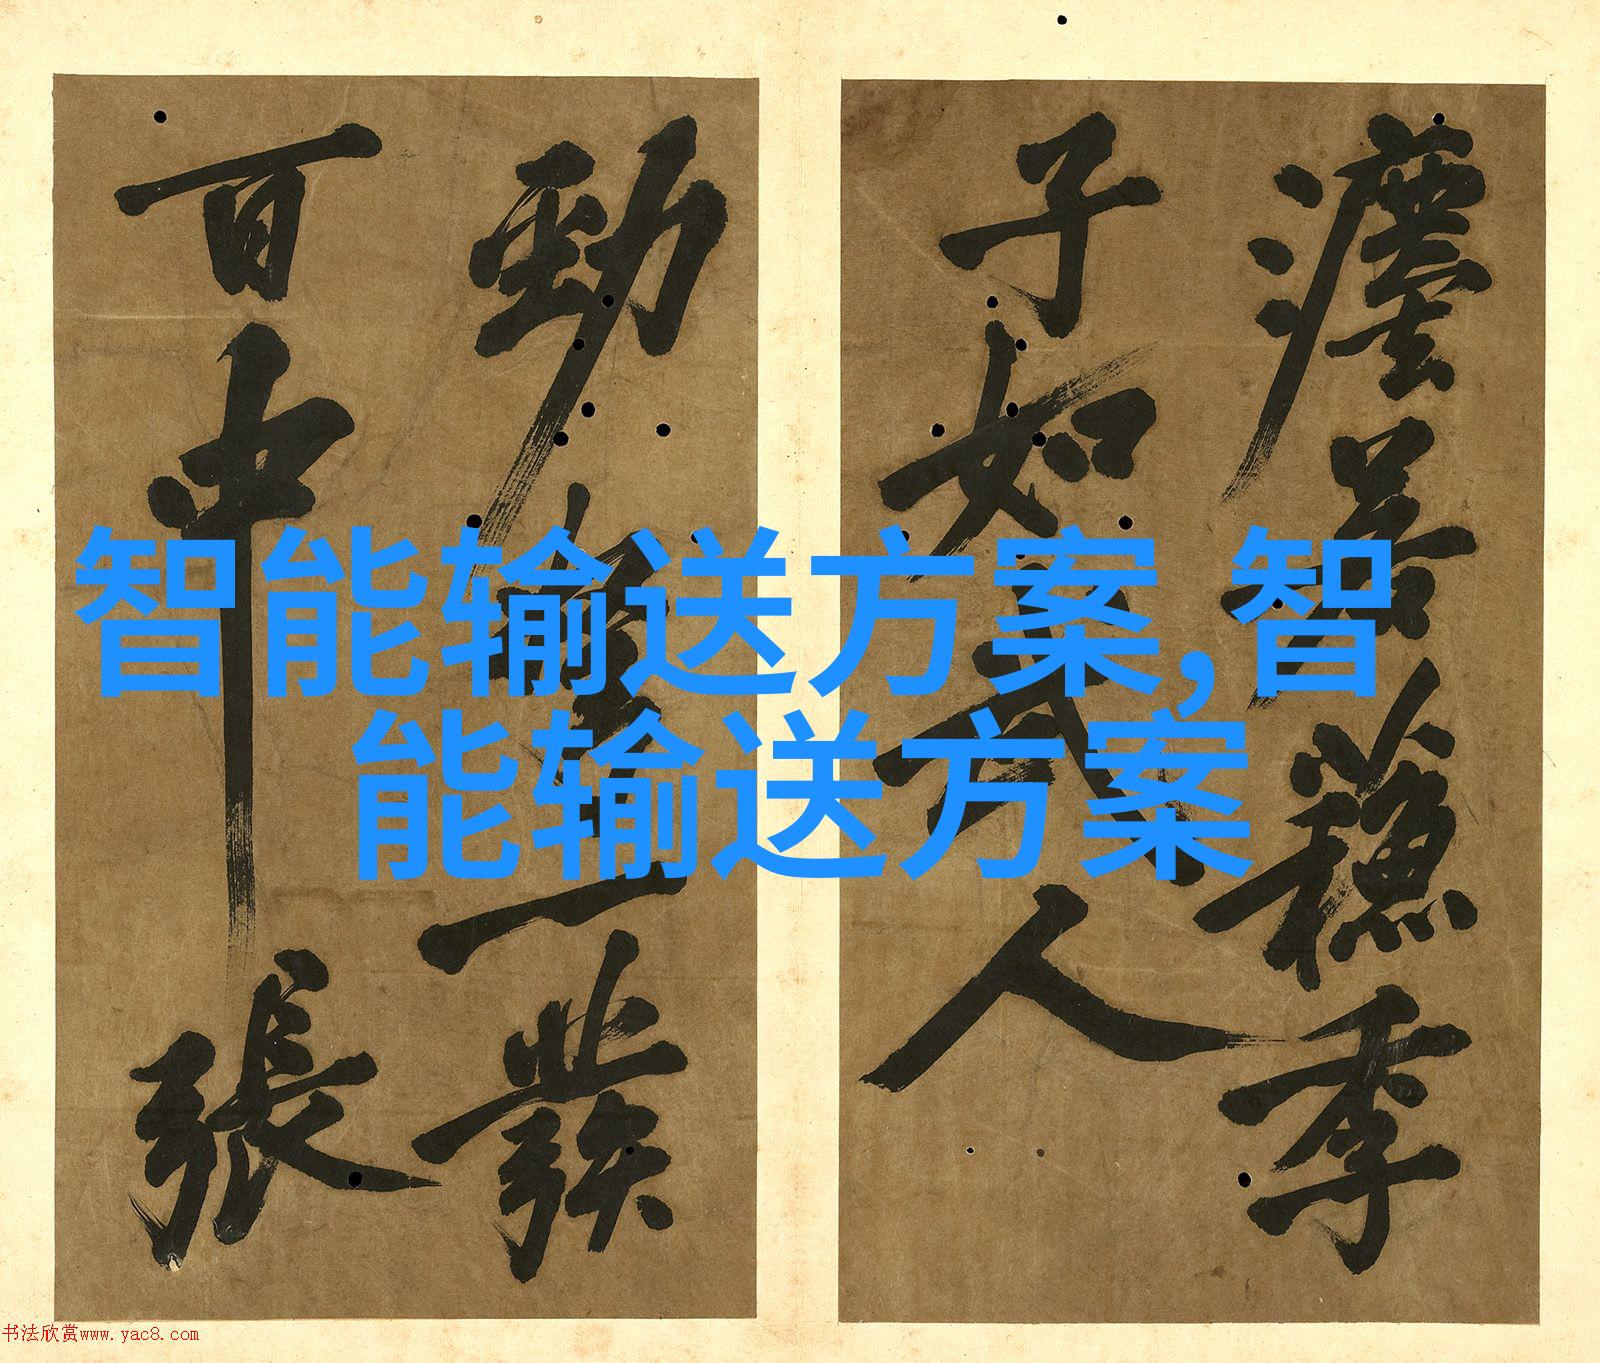 智能输送方案,智
能输送方案
季
子如人
勁一發
百中張
书法欣赏www.yac8.com